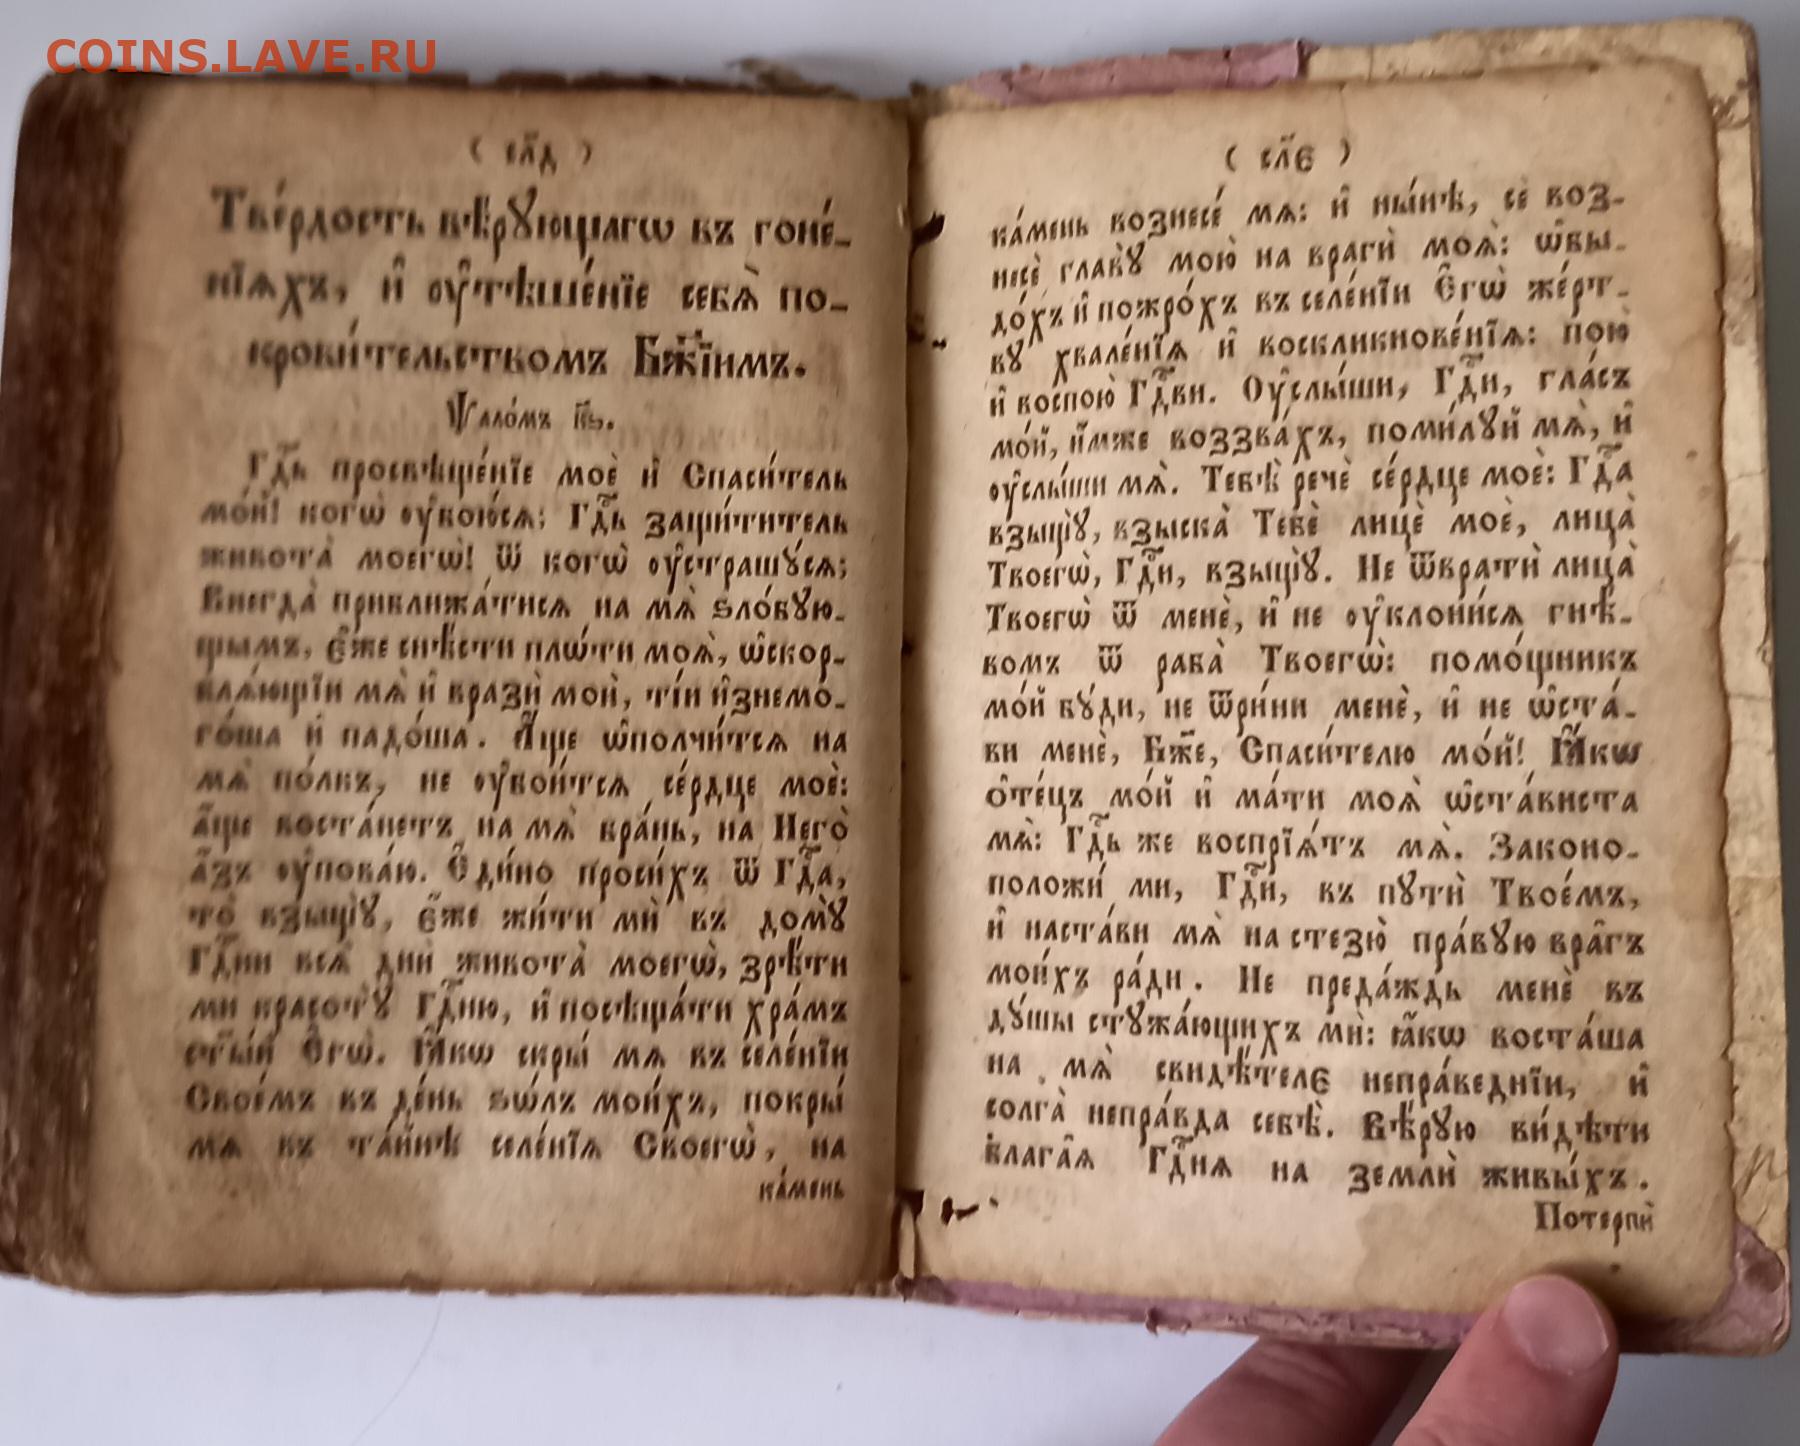 COINS.LAVE.RU
( сл҃д )
Тве́рдость вѣ́рꙋющагѡ въ гоне́-
нїѧхъ, и҆ оу҆тѣше́нїе себѧ̀ по-
крови́тельствомъ Бж҃їимъ.
Ѱало́мъ к҃ѕ.
Гдⷭ҇ь просвѣще́нїе моѐ и҆ Спаси́тель
мо́й! когѡ̀ оу҆бою́сѧ; Гдⷭ҇ь защи́титель
живота̀ моегѡ̀! ѿ когѡ̀ оу҆страшꙋ́сѧ;
Внегда̀ приближа́тисѧ на мѧ̀ ѕло́бꙋю-
щымъ, є҆́же снѣ́сти плѡ́ти моѧ̀, ѡ҆скор-
блѧ́ющїи мѧ̀ и҆ вразѝ моѝ, ті́и и҆знемо-
го́ша и҆ падо́ша. А҆́ще ѡ҆полчи́тсѧ на
мѧ̀ по́лкъ, не оу҆бои́тсѧ се́рдце моѐ:
а҆́ще воста́нетъ на мѧ̀ бра́нь, на Него̀
а҆́зъ оу҆пова́ю. Є҆ди́но проси́хъ ѿ Гдⷭ҇а,
то̀ взыщꙋ̀, є҆́же жи́ти мѝ въ домꙋ̀
Гдⷭ҇ни всѧ̑ днѝ живота̀ моегѡ̀, зрѣ́ти
ми красотꙋ̀ Гдⷭ҇ню, и҆ посѣща́ти хра́мъ
ст҃ы́й Є҆гѡ̀. Ꙗ҆́кѡ скры́ мѧ въ селе́нїи
Свое́мъ въ де́нь ѕѡ́лъ мои́хъ, покры́
мѧ въ та́йнѣ селе́нїѧ Своегѡ̀, на
ка́мень
( сл҃є )
ка́мень вознесе́ мѧ: и҆ ны́нѣ, сѐ воз-
несѐ главꙋ̀ мою̀ на врагѝ моѧ̀: ѡ҆бы-
до́хъ и҆ пожро́хъ въ селе́нїи Є҆гѡ̀ же́рт-
вꙋ хвале́нїѧ и҆ воскликнове́нїѧ: пою̀
и҆ воспою̀ Гдⷭ҇ви. Оу҆слы́ши, Гдⷭ҇и, гла́съ
мо́й, и҆́мже воззва́хъ, поми́лꙋй мѧ̀, и҆
оу҆слы́ши мѧ̀. Тебѣ̀ речѐ се́рдце моѐ: Гдⷭ҇а
взыщꙋ̀, взыска̀ Тебѐ лицѐ моѐ, лица̀
Твоегѡ̀, Гдⷭ҇и, взыщꙋ̀. Не ѿвратѝ лица̀
Твоегѡ̀ ѿ менѐ, и҆ не оу҆клони́сѧ гнѣ́-
вомъ ѿ раба̀ Твоегѡ̀: помо́щникъ
мо́й бꙋ́ди, не ѿри́ни менѐ, и҆ не ѡ҆ста́-
ви менѐ, Бж҃е, Спаси́телю мо́й! Ꙗ҆́кѡ
ѻ҆те́цъ мо́й и҆ ма́ти моѧ̀ ѡ҆ста́виста
мѧ̀: Гдⷭ҇ь же воспрїѧ́тъ мѧ̀. Законо-
положи́ ми, Гдⷭ҇и, въ пꙋтѝ Твое́мъ,
и҆ наста́ви мѧ̀ на стезю̀ пра́вꙋю вра̑гъ
мои́хъ ра́ди. Не преда́ждь менѐ въ
дꙋ́шы стꙋжа́ющихъ мѝ: ꙗ҆́кѡ воста́ша
на мѧ̀ свидѣ́телє непра́веднїи, и҆
солга̀ непра́вда себѣ̀. Вѣ́рꙋю ви́дѣти
блага̑ѧ Гдⷭ҇нѧ на землѝ живы́хъ.
Потерпѝ